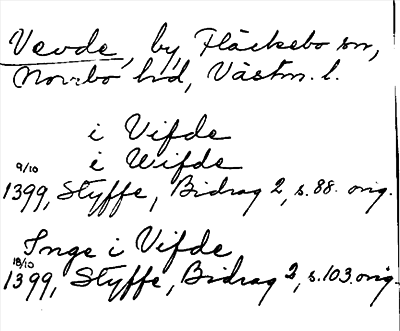 Vevde, by, Fläckebo sn,
Norrbo hd, Västm. l.
i Vifde
i Wifde
9/10
1399, Styffe, Bidrag 2, s. 88. orig.
Inge i Vifde
18/10
1399, Styffe, Bidrag 2, s. 103. orig.